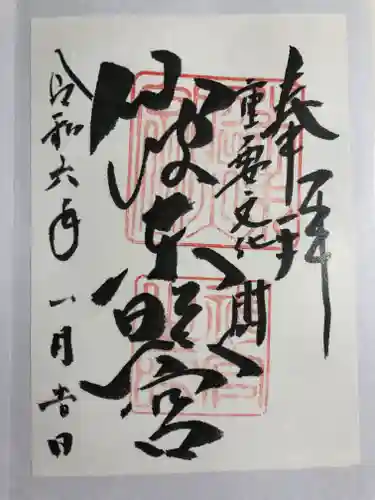 奉拝
重要文化財
仙波東照宮
令和六年一月吉日